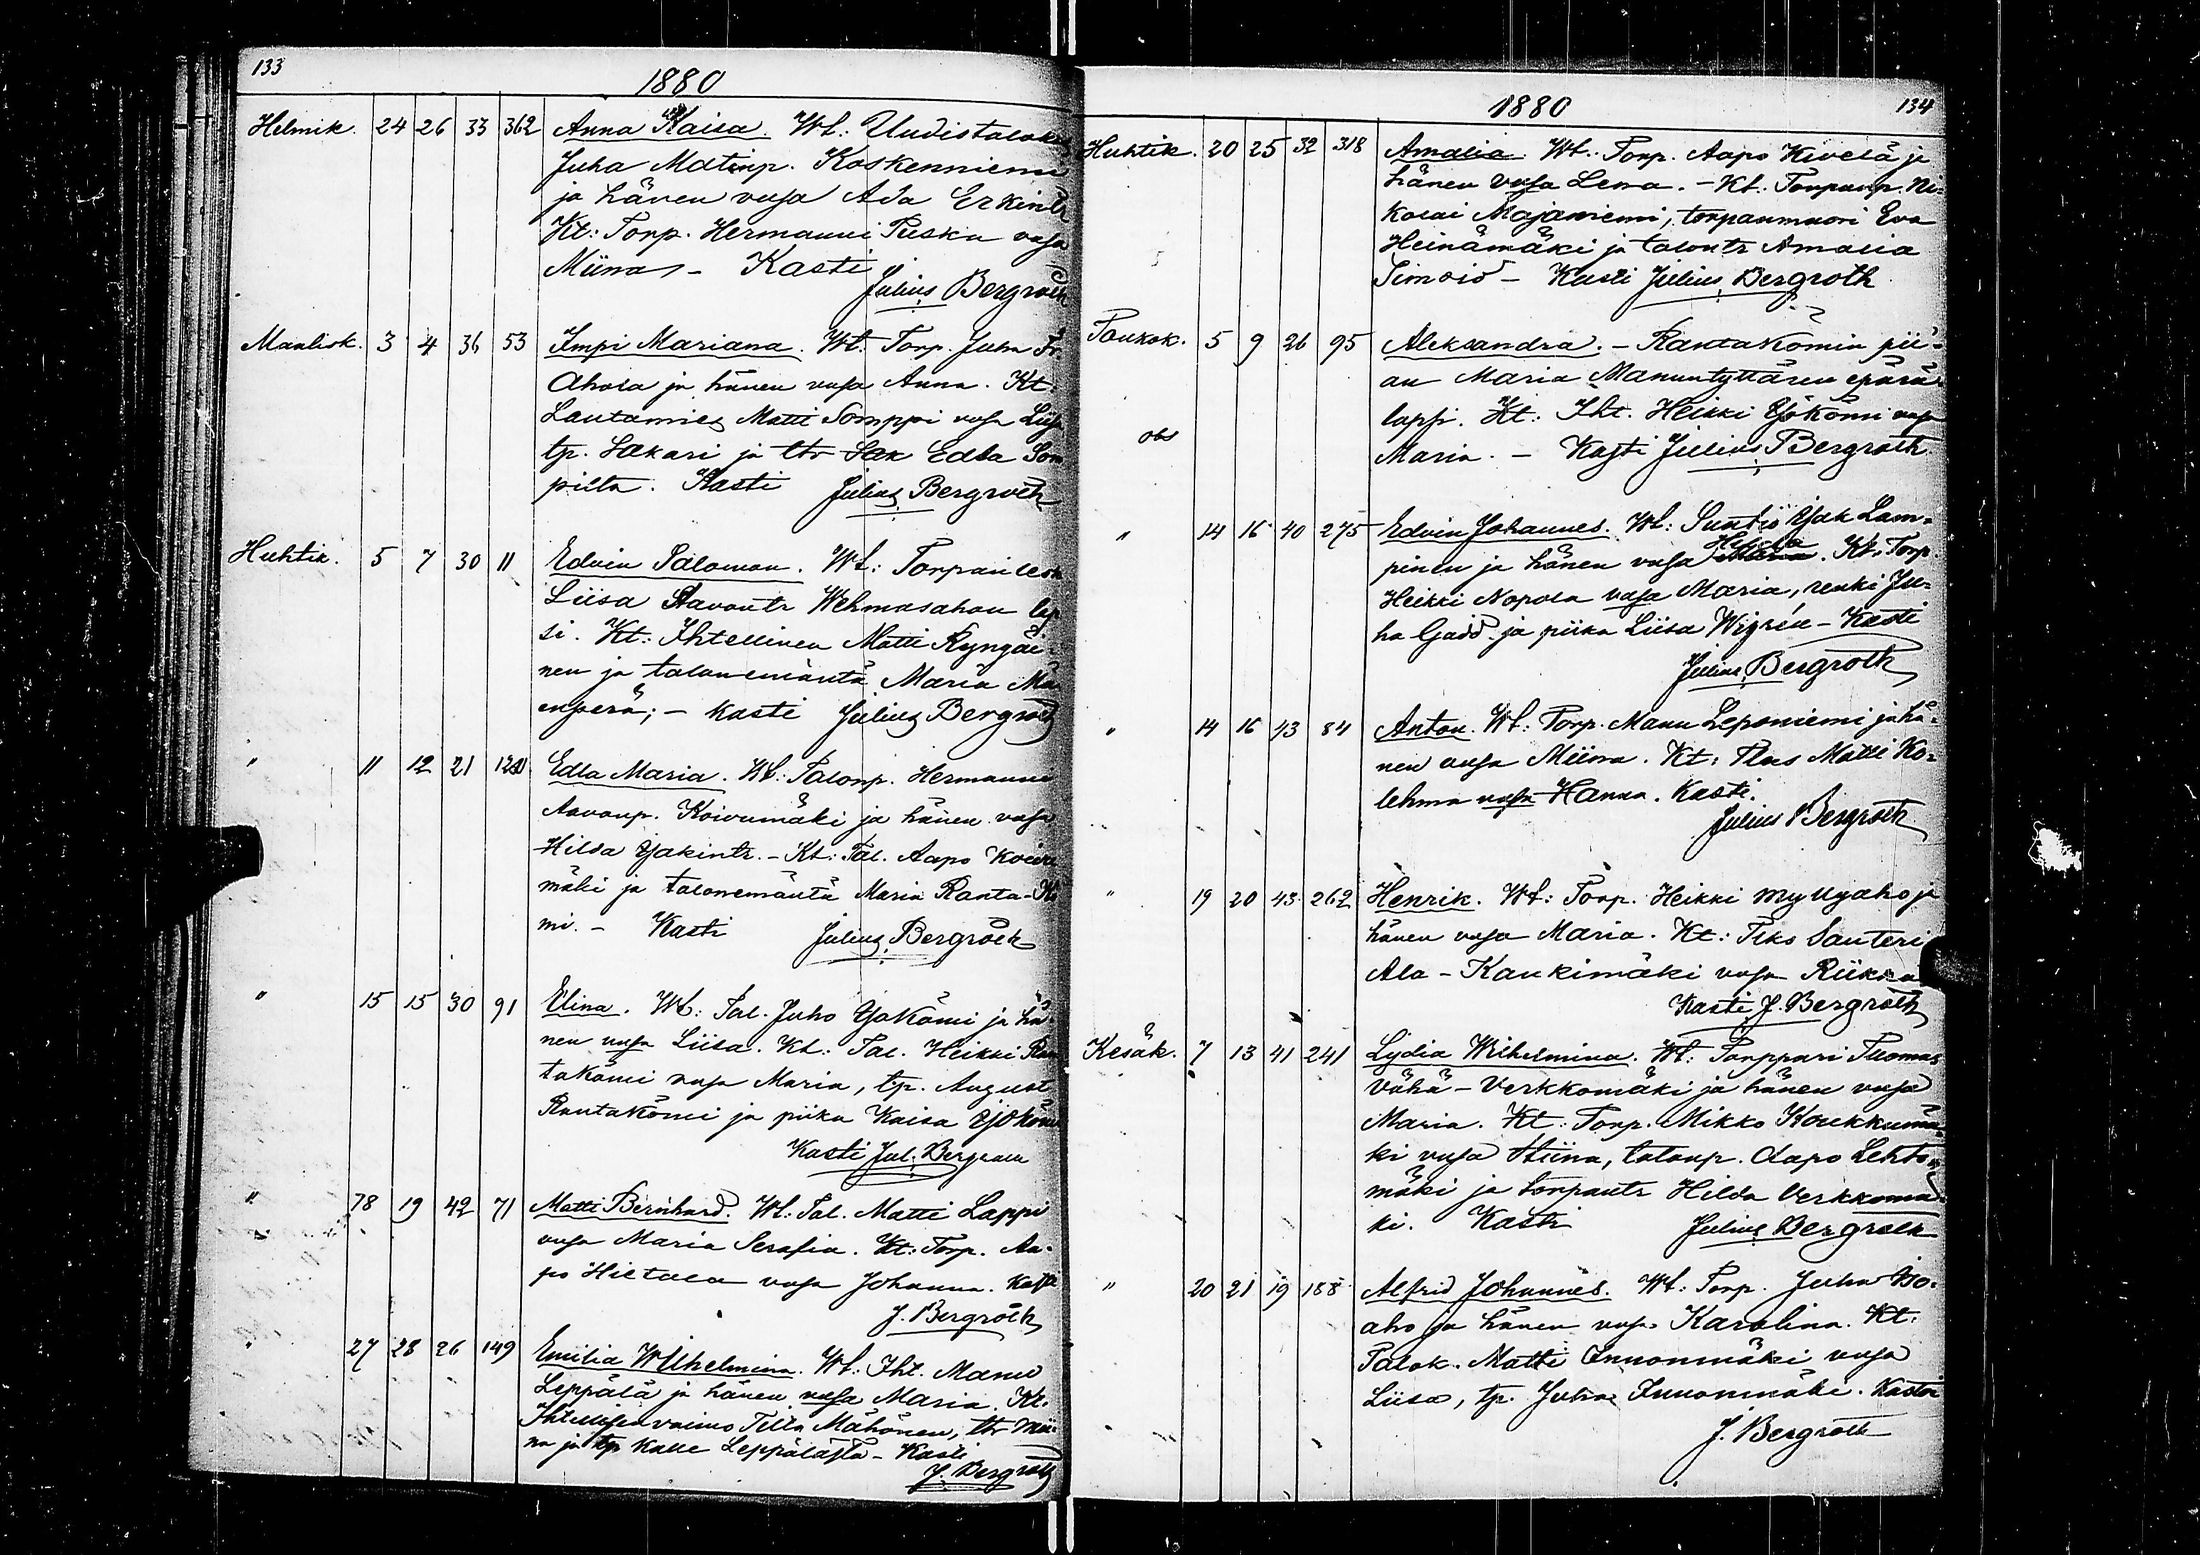 133
1880
Helmik. 24 26 33 362 Anna Kaisa. Wt: Uudistalok
Juha Matinp. Koskenniemi
ja hänen vmsa Ada Erkintr
Kt: Torp. Hermanni Puska vmsa
Miina - Kasti
Julius Bergroth
Maalisk. 3 4 36 53 Impi Mariana. Wt: Torp. Juha Fr
Ahola ja hänen vmsa Anna. Kt:
Lautamies Matti Somppi vmsa Liisa
tp. Sakari ja ttr Edla Som
pilta. Kasti Julius Bergroth
Huhtik. 5 7 30 11 Edvin Salomon. Wt: Torpan lesk
Liisa Aavontr Wehmasahon lap
si. Kt: Ihtellinen Matti Kyngäi-
nen ja talonemäntä Maria Mä
enperä; - Kasti Julius Bergroth
" 11 12 21 Edla Maria. Wt: Talonp. Hermanni
Aavonp. Koivumäki ja hänen vmsa
Hilda Jakintr. - Kt: Tal. Aapo Koivu
mäki ja talonemäntä Maria Ranta-Kö
mi. - Kasti Julius Bergroth
" 15 15 30 91 Elina. Wt: Tal. Juho Yökömi ja hä-
nen vmsa Liisa. Kt: Tal. Heikki Ran
takömi vmsa Maria, tp. August
Rantakömi ja piika Kaisa Yjokömi
Kasti Jul. Bergroth
" 78 19 42 71 Matti Bernhard. Wt: Tal. Matti Lappi
vmsa Maria Serafia. Kt: Torp. Aa-
po Hietala vmsa Johanna. Kasti
J. Bergroth
" 27 28 26 149 Emilia Wilhelmina. Wt: Iht. Manu
Leppälä ja hänen vmsa Maria. Kt:
Ihtellisen vaimo Tilta Mähönen, ttr Mii-
na ja tp Kalle Leppälästä - Kasti
J. Bergroth
1880 134
Huhtik. 20 25 32 318 Amalia. Wt: Torp. Aapo Kivelä ja
hänen vmsa Lena. - Kt: Torpanp. Ni-
kolai Majaniemi, torpanmuori Eva
Heinämäki ja talontr Amalia
Simoid - Kasti Julius Bergroth
Toukok. 5 9 26 95 Aleksandra. - Rantakömin pii-
an Maria Manuntyttären epärä
lapsi. Kt: Iht. Heikki Yökömi vmsa
obs
Maria. - Kasti Julius Bergroth
" 14 16 40 275 Edvin Johannes. Wt: Suntio Jak Lam-
pinen ja hänen vmsa. Kt: Torp.
Heikki Nopola vmsa Maria, renki Ju-
ha Gadd ja piika Liisa Wigrén - Kasti
Julius Bergroth
" 14 16 43 84 Anton. Wt: Torp. Manu Leponiemi ja hä-
nen vmsa Miina. Kt: Matti Ko-
lehma vmsa Hanna. Kasti.
Julius Bergroth
" 19 20 43 262 Henrik. Wt: Torp. Heikki Myllyaho ja
hänen vmsa Maria. Kt: Santeri
Ala-Kaukimäki vmsa Riikka
Kasti J. Bergroth
Kesäk. 7 13 41 241 Lydia Wilhelmina. Wt: Torppari Tuomas
Vähä-Verkkomäki ja hänen vmsa
Maria. Kt: Torp. Mikko Koukkumä-
ki vmsa Stiina, talonp. Aapo Lehto-
mäki ja torpantr Hilda Verkkomä-
ki. Kasti Julius Bergroth
" 20 21 19 188 Alfrid Johannes. Wt: Torp. Juha Iso-
aho ja hänen vmsa Karolina. Kt:
Talok. Matti Innonmäki vmsa
Liisa, tp. Juha Innonmäki. Kastoi
J. Bergroth